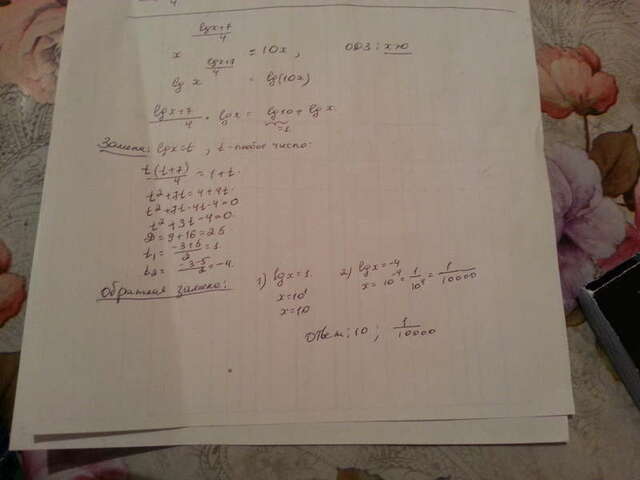 x^((lgx+7)/4) = 10x, ОДЗ: x>0
lg x^((lgx+7)/4) = lg(10x)
(lgx+7)/4 · lgx = lg10 + lgx
=1
Замена: lgx=t, t-любое число
t(t+7)/4 = 1+t
t²+7t=4+4t
t²+7t-4t-4=0
t²+3t-4=0
D=9+16=25
t₁= (-3+5)/2 = 1
t₂= (-3-5)/2 = -4
Обратная замена:
1) lgx=1
x=10¹
x=10
2) lgx=-4
x=10⁻⁴= 1/10⁴ = 1/10000
Ответ: 10; 1/10000